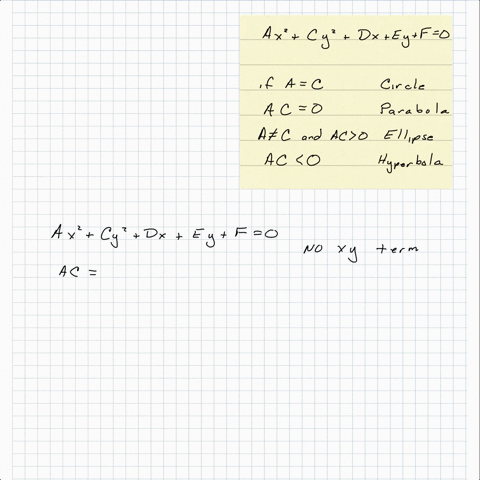 Ax² + Cy² + Dx + Ey + F = 0
if A = C Circle
AC = 0 Parabola
A ≠ C and AC > 0 Ellipse
AC < 0 Hyperbola
Ax² + Cy² + Dx + Ey + F = 0
NO xy term
AC =